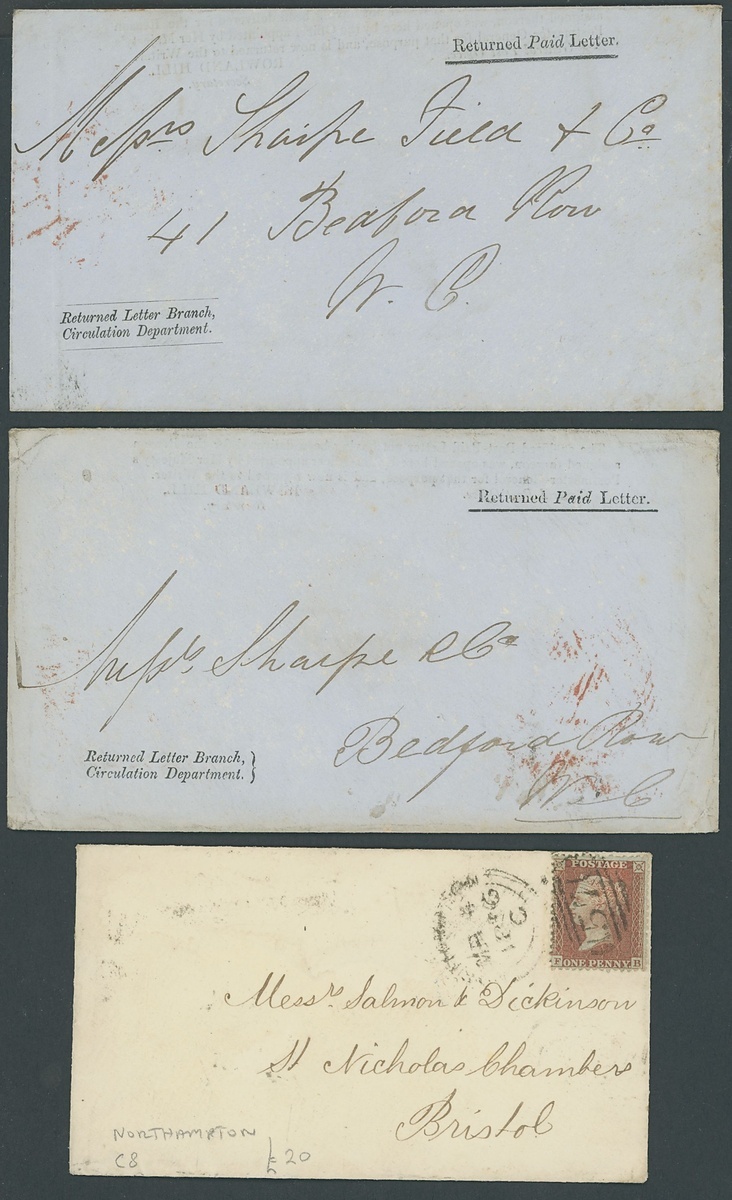 Returned Paid Letter.
Messrs Sharpe Field & Co
41 Bedford Row
W. C.
Returned Letter Branch,
Circulation Department.
ROWLAND HILL,
Secretary.
Returned Paid Letter.
Messrs Sharpe & Co
Bedford Row
W C
Returned Letter Branch,
Circulation Department.
POSTAGE
ONE PENNY
F B
Messrs Salmon & Dickinson
St Nicholas Chambers
Bristol
NORTHAMPTON
C8 £20